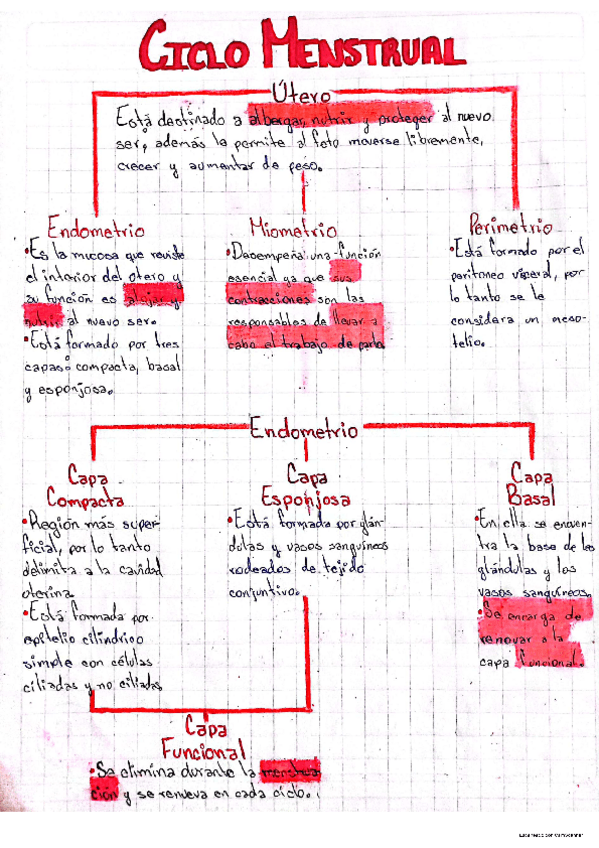 CICLO MENSTRUAL
Útero
Está destinado a albergar, nutrir y proteger al nuevo
ser, además la permite al feto moverse libremente,
crecer y aumentar de peso.
Endometrio
•Es la mucosa que reviste
el interior del otero y
su función es alojar y
nutrir al nuevo ser.
•Está formado por tres
capas: compacta, basal
y esponjosa.
Miometrio
•Desempeña una función
esencial ya que sus
contracciones son las
responsables de llevar a
cabo el trabajo de parto.
Perimetrio
•Está formado por el
peritoneo viseral, por
lo tanto se le
considera un meso-
telio.
Endometrio
Capa
Compacta
•Región más super-
ficial, por lo tanto
delimita a la cavidad
oterina
•Está formada por
epitelio cilíndrico
simple con células
ciliadas y no ciliadas
Capa
Esponjosa
•Está formada por glán-
dulas y vasos sanguíneos
rodeados de tejido
conjuntivo.
Capa
Basal
•En ella se encuen-
tra la base de las
glándulas y los
vasos sanguíneos.
•Se encarga de
renovar a la
capa funcional.
Capa
Funcional
•Se elimina durante la menstrua
ción y se renueva en cada ciclo.